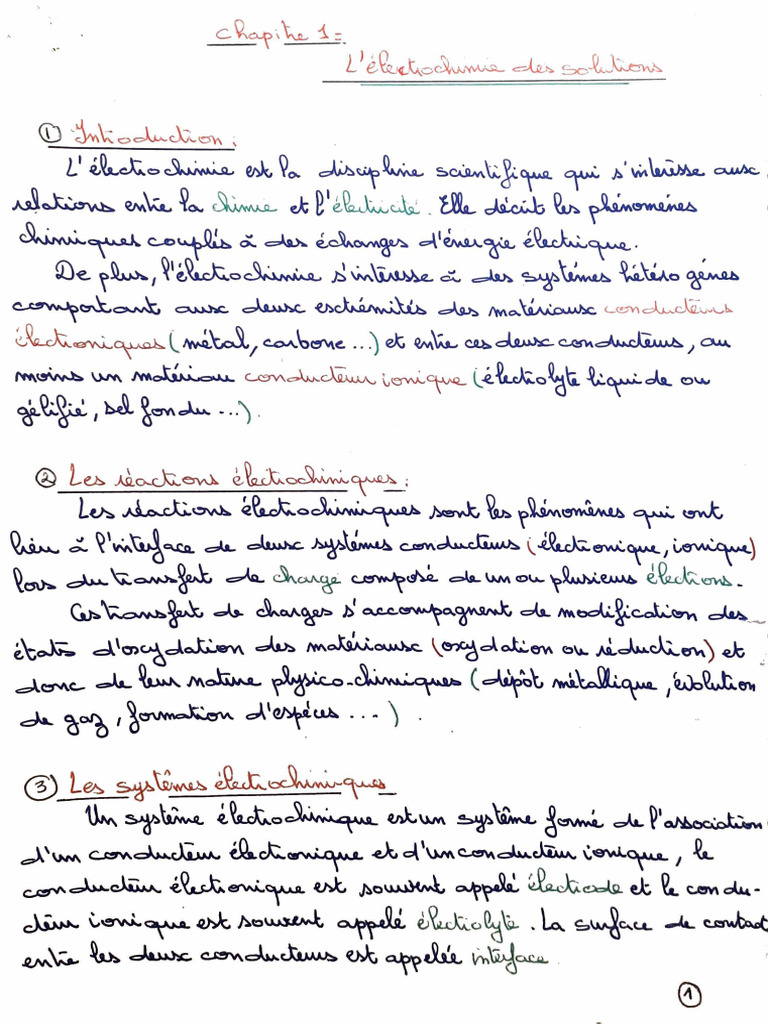 Chapitre 1 =
L'électrochimie des solutions
① Introduction :
L'électrochimie est la discipline scientifique qui s'intérèsse aux
relations entre la chimie et l'électricité. Elle décrit les phénomènes
chimiques couplés à des échanges d'énergie électrique.
De plus, l'électrochimie s'intèresse à des systèmes hétérogénes
comportant aux deux extrémités des matériaux conducteurs
électroniques (métal, carbone ...) et entre ces deux conducteurs, au
moins un matériau conducteur ionique (électrolyte liquide ou
gélifié, sel fondu ...).
② Les réactions électrochimiques :
Les réactions électrochimiques sont les phénomènes qui ont
lieu à l'interface de deux systèmes conducteurs (électronique, ionique)
lors du transfert de charge composé de un ou plusieurs électrons.
Ces transfert de charges s'accompagnent de modification des
états d'oxydation des matériaux (oxydation ou réduction) et
donc de leur nature physico-chimiques (dépôt métallique, évolution
de gaz, formation d'espéces ... ) .
③ Les systêmes électrochimiques
Un systême électrochimique est un systême formé de l'association
d'un conducteur électronique et d'un conducteur ionique, le
conducteur électronique est souvent appelé électrode et le condu-
cteur ionique est souvent appelé électrolyte. La surface de contact
entre les deux conducteurs est appelée interface.
①